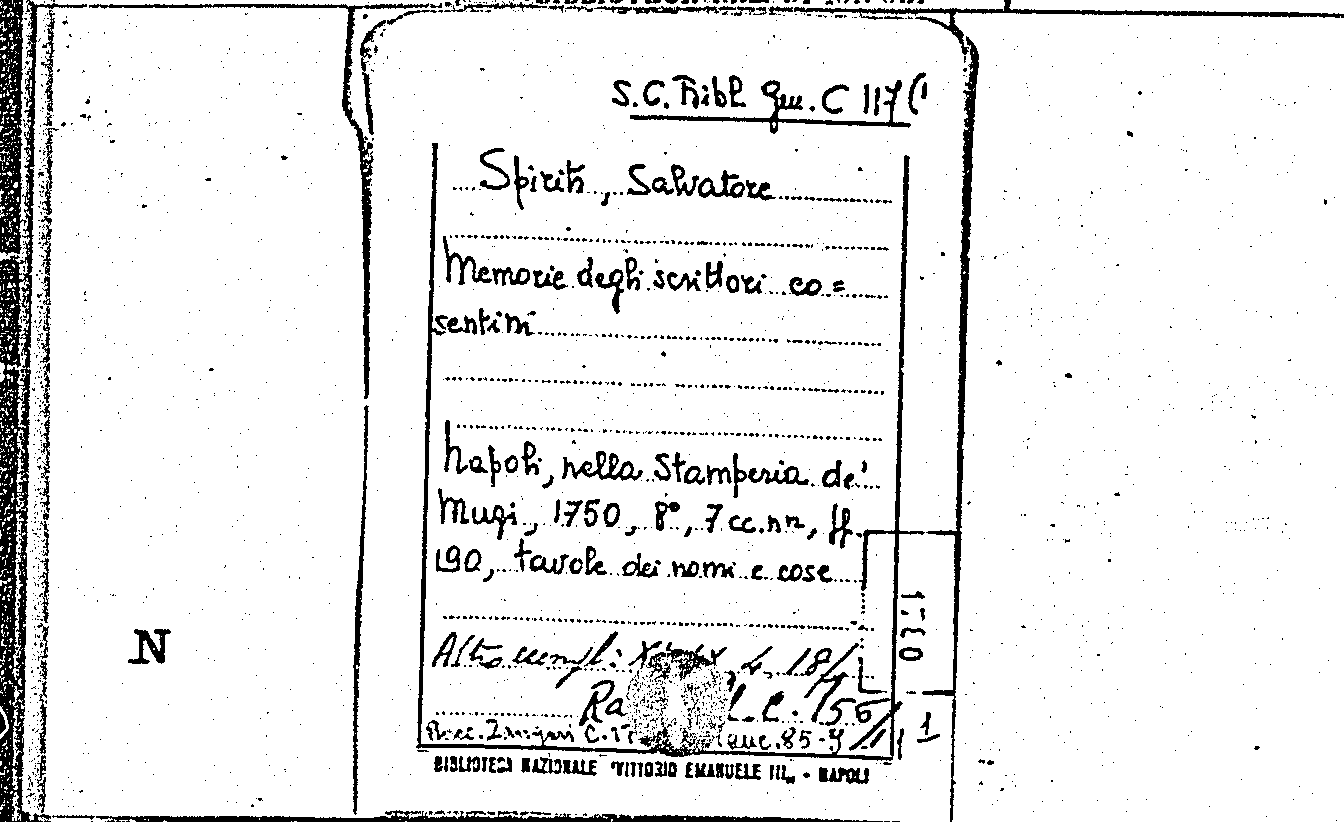 S.C. Bibl. Gen. C 117 (1
Spiriti, Salvatore
Memorie degli scrittori co=
sentini
Napoli, nella Stamperia de'
Muzi, 1750, 8°, 7 cc.nn,
190, tavole dei nomi e cose
Altro 4, 18
Ra
Racc. 85
1
N
BIBLIOTECA NAZIONALE "VITTORIO EMANUELE III" - NAPOLI